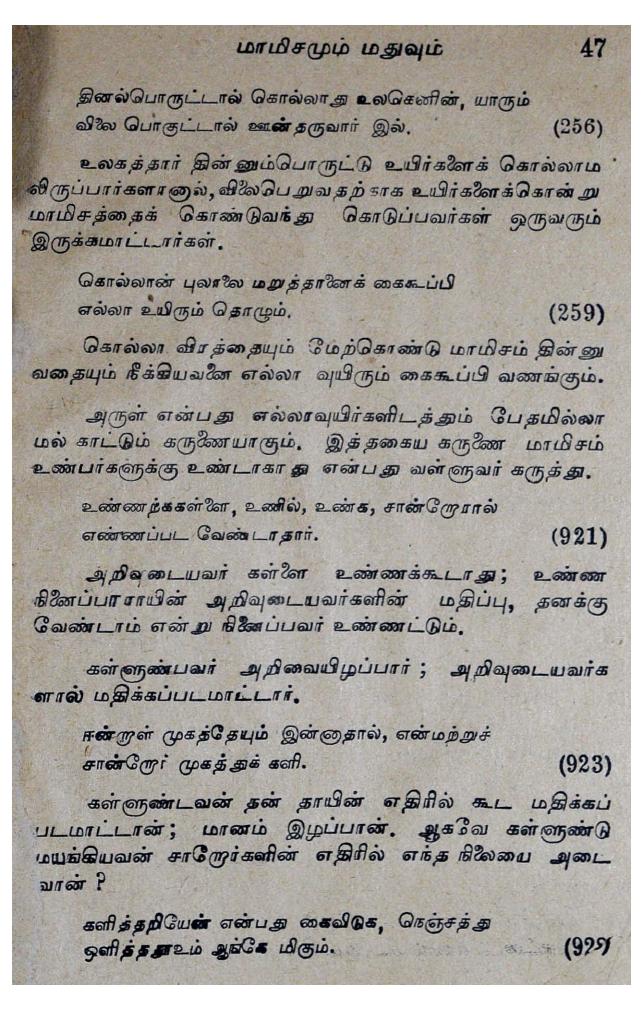 மாமிசமும் மதுவும் 47
தினல்பொருட்டால் கொல்லாது உலகெனின், யாரும்
விலை பொகுட்டால் ஊன்தருவார் இல். (256)
உலகத்தார் தின்னும்பொருட்டு உயிர்களைக் கொல்லாம
லிருப்பார்களானால், விலைபெறுவதற்காக உயிர்களைக்கொன்று
மாமிசத்தைக் கொண்டுவந்து கொடுப்பவர்கள் ஒருவரும்
இருக்கமாட்டார்கள்.
கொல்லான் புலாலை மறுத்தானைக் கைகூப்பி
எல்லா உயிரும் தொழும். (259)
கொல்லா விரத்தையும் மேற்கொண்டு மாமிசம் தின்னு
வதையும் நீக்கியவனை எல்லா வுயிரும் கைகூப்பி வணங்கும்.
அருள் என்பது எல்லாவுயிர்களிடத்தும் பேதமில்லா
மல் காட்டும் கருணையாகும். இத்தகைய கருணை மாமிசம்
உண்பர்களுக்கு உண்டாகாது என்பது வள்ளுவர் கருத்து.
உண்ணற்ககள்ளை, உணில், உண்க, சான்றோரால்
எண்ணப்பட வேண்டாதார். (921)
அறிவுடையவர் கள்ளை உண்ணக்கூடாது; உண்ண
நினைப்பாராயின் அறிவுடையவர்களின் மதிப்பு, தனக்கு
வேண்டாம் என்று நினைப்பவர் உண்ணட்டும்.
கள்ளுண்பவர் அறிவையிழப்பார்; அறிவுடையவர்க
ளால் மதிக்கப்படமாட்டார்.
ஈன்றாள் முகத்தேயும் இன்னாதால், என்மற்றுச்
சான்றோர் முகத்துக் களி. (923)
கள்ளுண்டவன் தன் தாயின் எதிரில் கூட மதிக்கப்
படமாட்டான்; மானம் இழப்பான். ஆகவே கள்ளுண்டு
மயங்கியவன் சாறோர்களின் எதிரில் எந்த நிலையை அடை
வான்?
களித்தறியேன் என்பது கைவிடுக, நெஞ்சத்து
ஒளித்ததூஉம் ஆங்கே மிகும்.